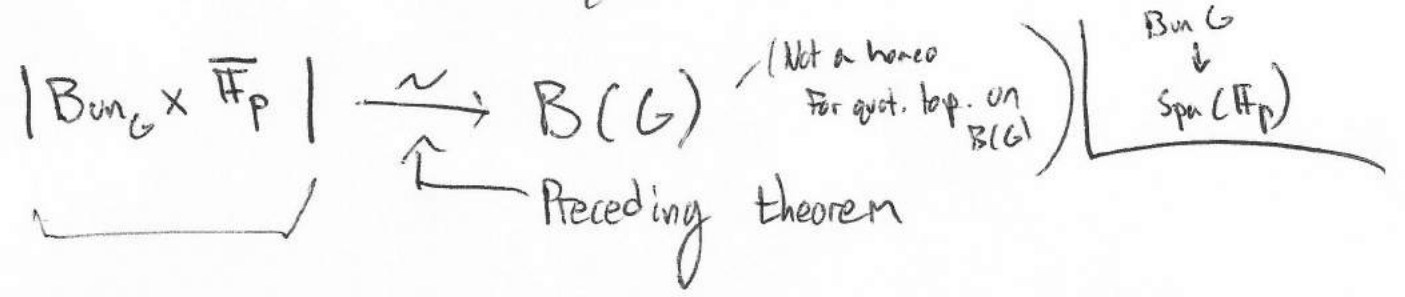 |Bun_G × \overline{𝔽}_p| \xrightarrow{∼} B(G)
(Not a homeo
For quot. top. on
B(G))
Bun G
↓
Spa(𝔽_p)
Preceding theorem